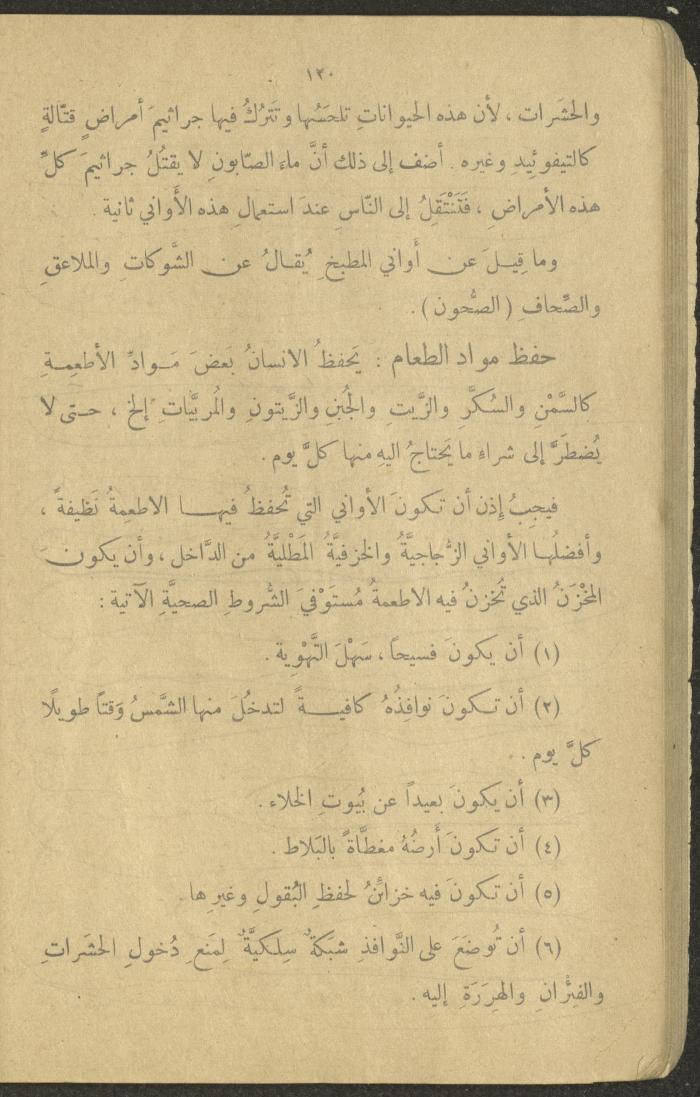 ١٢٠
والحشَرات ، لأن هذه الحيواناتِ تلحَسُها وتَترُكُ فيها جراثيمَ أمراضٍ قتّالةٍ
كالتيفوئيدِ وغيره . أضف إلى ذلك أنَّ ماء الصّابونِ لا يقتُلُ جراثيمَ كلِّ
هذه الأمراضِ ، فَتَنْتَقِلُ إلى النّاسِ عندَ استعمالِ هذه الأَواني ثانية .
وما قِيلَ عن أَواني المطبخِ يُقالُ عن الشَّوكاتِ والملاعقِ
والصِّحافِ ( الصُّحون ) .
حفظ مواد الطعام : يَحفظُ الانسانُ بَعضَ مَوادِّ الأطعمةِ
كالسَّمْنِ والسُكَّرِ والزَّيتِ والجُبنِ والزَّيتونِ والمُربَّياتِ إلخ ، حتى لا
يُضطَرَّ إلى شراءِ ما يَحتاجُ اليهِ منها كلَّ يوم .
فيجبُ إذن أن تكونَ الأواني التي تُحفظُ فيها الاطعمةُ نَظيفةً ،
وأفضلُها الأواني الزُّجاجيَّةُ والخزفيَّةُ المَطْليَّةُ من الدَّاخل ، وأن يكونَ
المخْزَنُ الذي تُخزنُ فيه الاطعمةُ مُستَوْفيَ الشُّروطِ الصحيَّةِ الآتية :
(١) أن يكونَ فسيحاً ، سَهْلَ التَّهْوِية .
(٢) أن تكونَ نوافذُهُ كافيةً لتدخُلَ منها الشَّمسُ وَقتاً طويلًا
كلَّ يوم .
(٣) أن يكونَ بعيداً عن بُيوتِ الخلاء .
(٤) أن تكونَ أَرضُهُ مغطَّاةً بالبَلاط .
(٥) أن تكونَ فيه خزائنُ لحفظِ البُقولِ وغيرِها .
(٦) أن تُوضَعَ على النَّوافذِ شبَكةٌ سِلكيَّةٌ لِمَنعِ دُخولِ الحشَراتِ
والفِئْرانِ والهِرَرَةِ إليه .